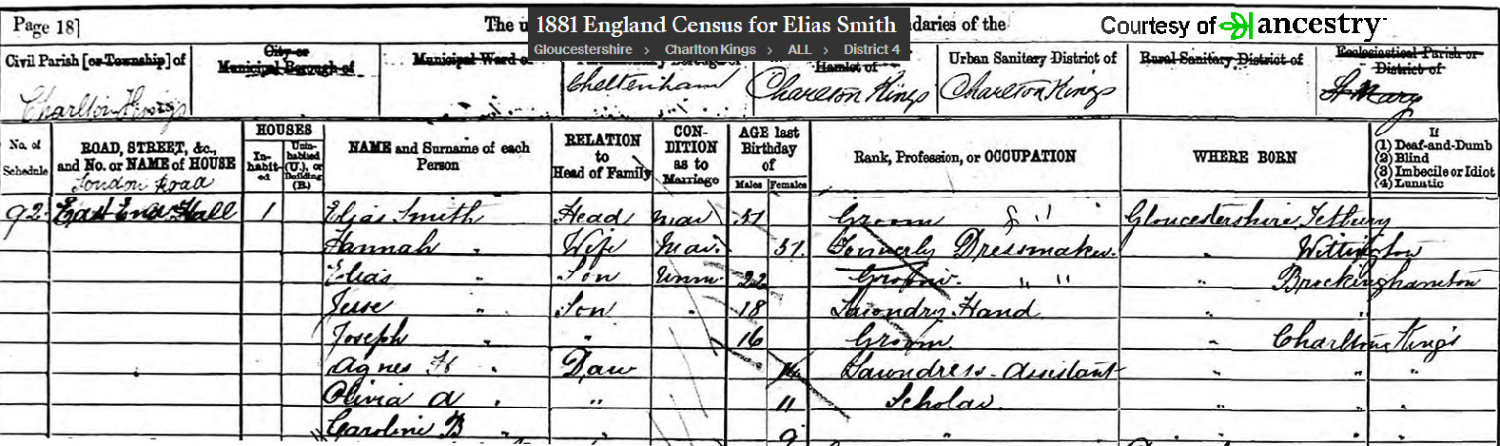 Page 18]
The u
1881 England Census for Elias Smith
daries of the
Courtesy of ancestry
Gloucestershire > Charlton Kings > ALL > District 4
Civil Parish [or Township] of
City or Municipal Borough of
Municipal Ward of
Hamlet of
Urban Sanitary District of
Rural Sanitary District of
Ecclesiastical Parish or District of
Charlton Kings
Cheltenham
Charlton Kings
Charlton Kings
St Mary
No. of Schedule
ROAD, STREET, &c., and No. or NAME of HOUSE
HOUSES
Inhabited
Uninhabited (U.), or Building (B.)
NAME and Surname of each Person
RELATION to Head of Family
CONDITION as to Marriage
AGE last Birthday of
Males Females
Rank, Profession, or OCCUPATION
WHERE BORN
If
(1) Deaf-and-Dumb
(2) Blind
(3) Imbecile or Idiot
(4) Lunatic
London Road
92 East End Hall 1 Elias Smith Head Mar 51 Groom Gloucestershire, Tetbury
Hannah " Wife Mar. 51 Formerly Dressmaker. Wittington
Elias " Son Unm. 22 Groom. " " " Brockinghamton
Jesse " Son " 18 Laundry Hand " "
Joseph " " 16 Groom " Charlton Kings
Agnes H " Daur 14 Laundress-Assistant " "
Olivia A " " 11 Scholar " "
Caroline B " " 9 " " "